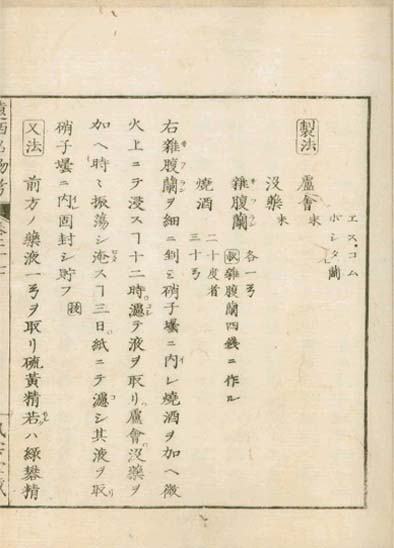 エス.コム
ホシタ蘭
製法
盧會末
没藥末 各一弓
雜腹蘭サフラン 雜腹蘭四錢ニ作ル
燒酒 二十度者
三十弓
右雜腹蘭サフランヲ細ニ剉ミ硝子壜ニ内レ燒酒ヲ加ヘ微
火上ニテ浸スヿ十二時濾テ液ヲ取リ盧會没藥ヲ
加ヘ時ミ振蕩シ淹スヿ三日紙ニテ濾シ其液ヲ取リ
硝子壜ニ内固封シ貯フ
又法 前方ノ藥液一弓ヲ取リ硫黃精若ハ緑礬精